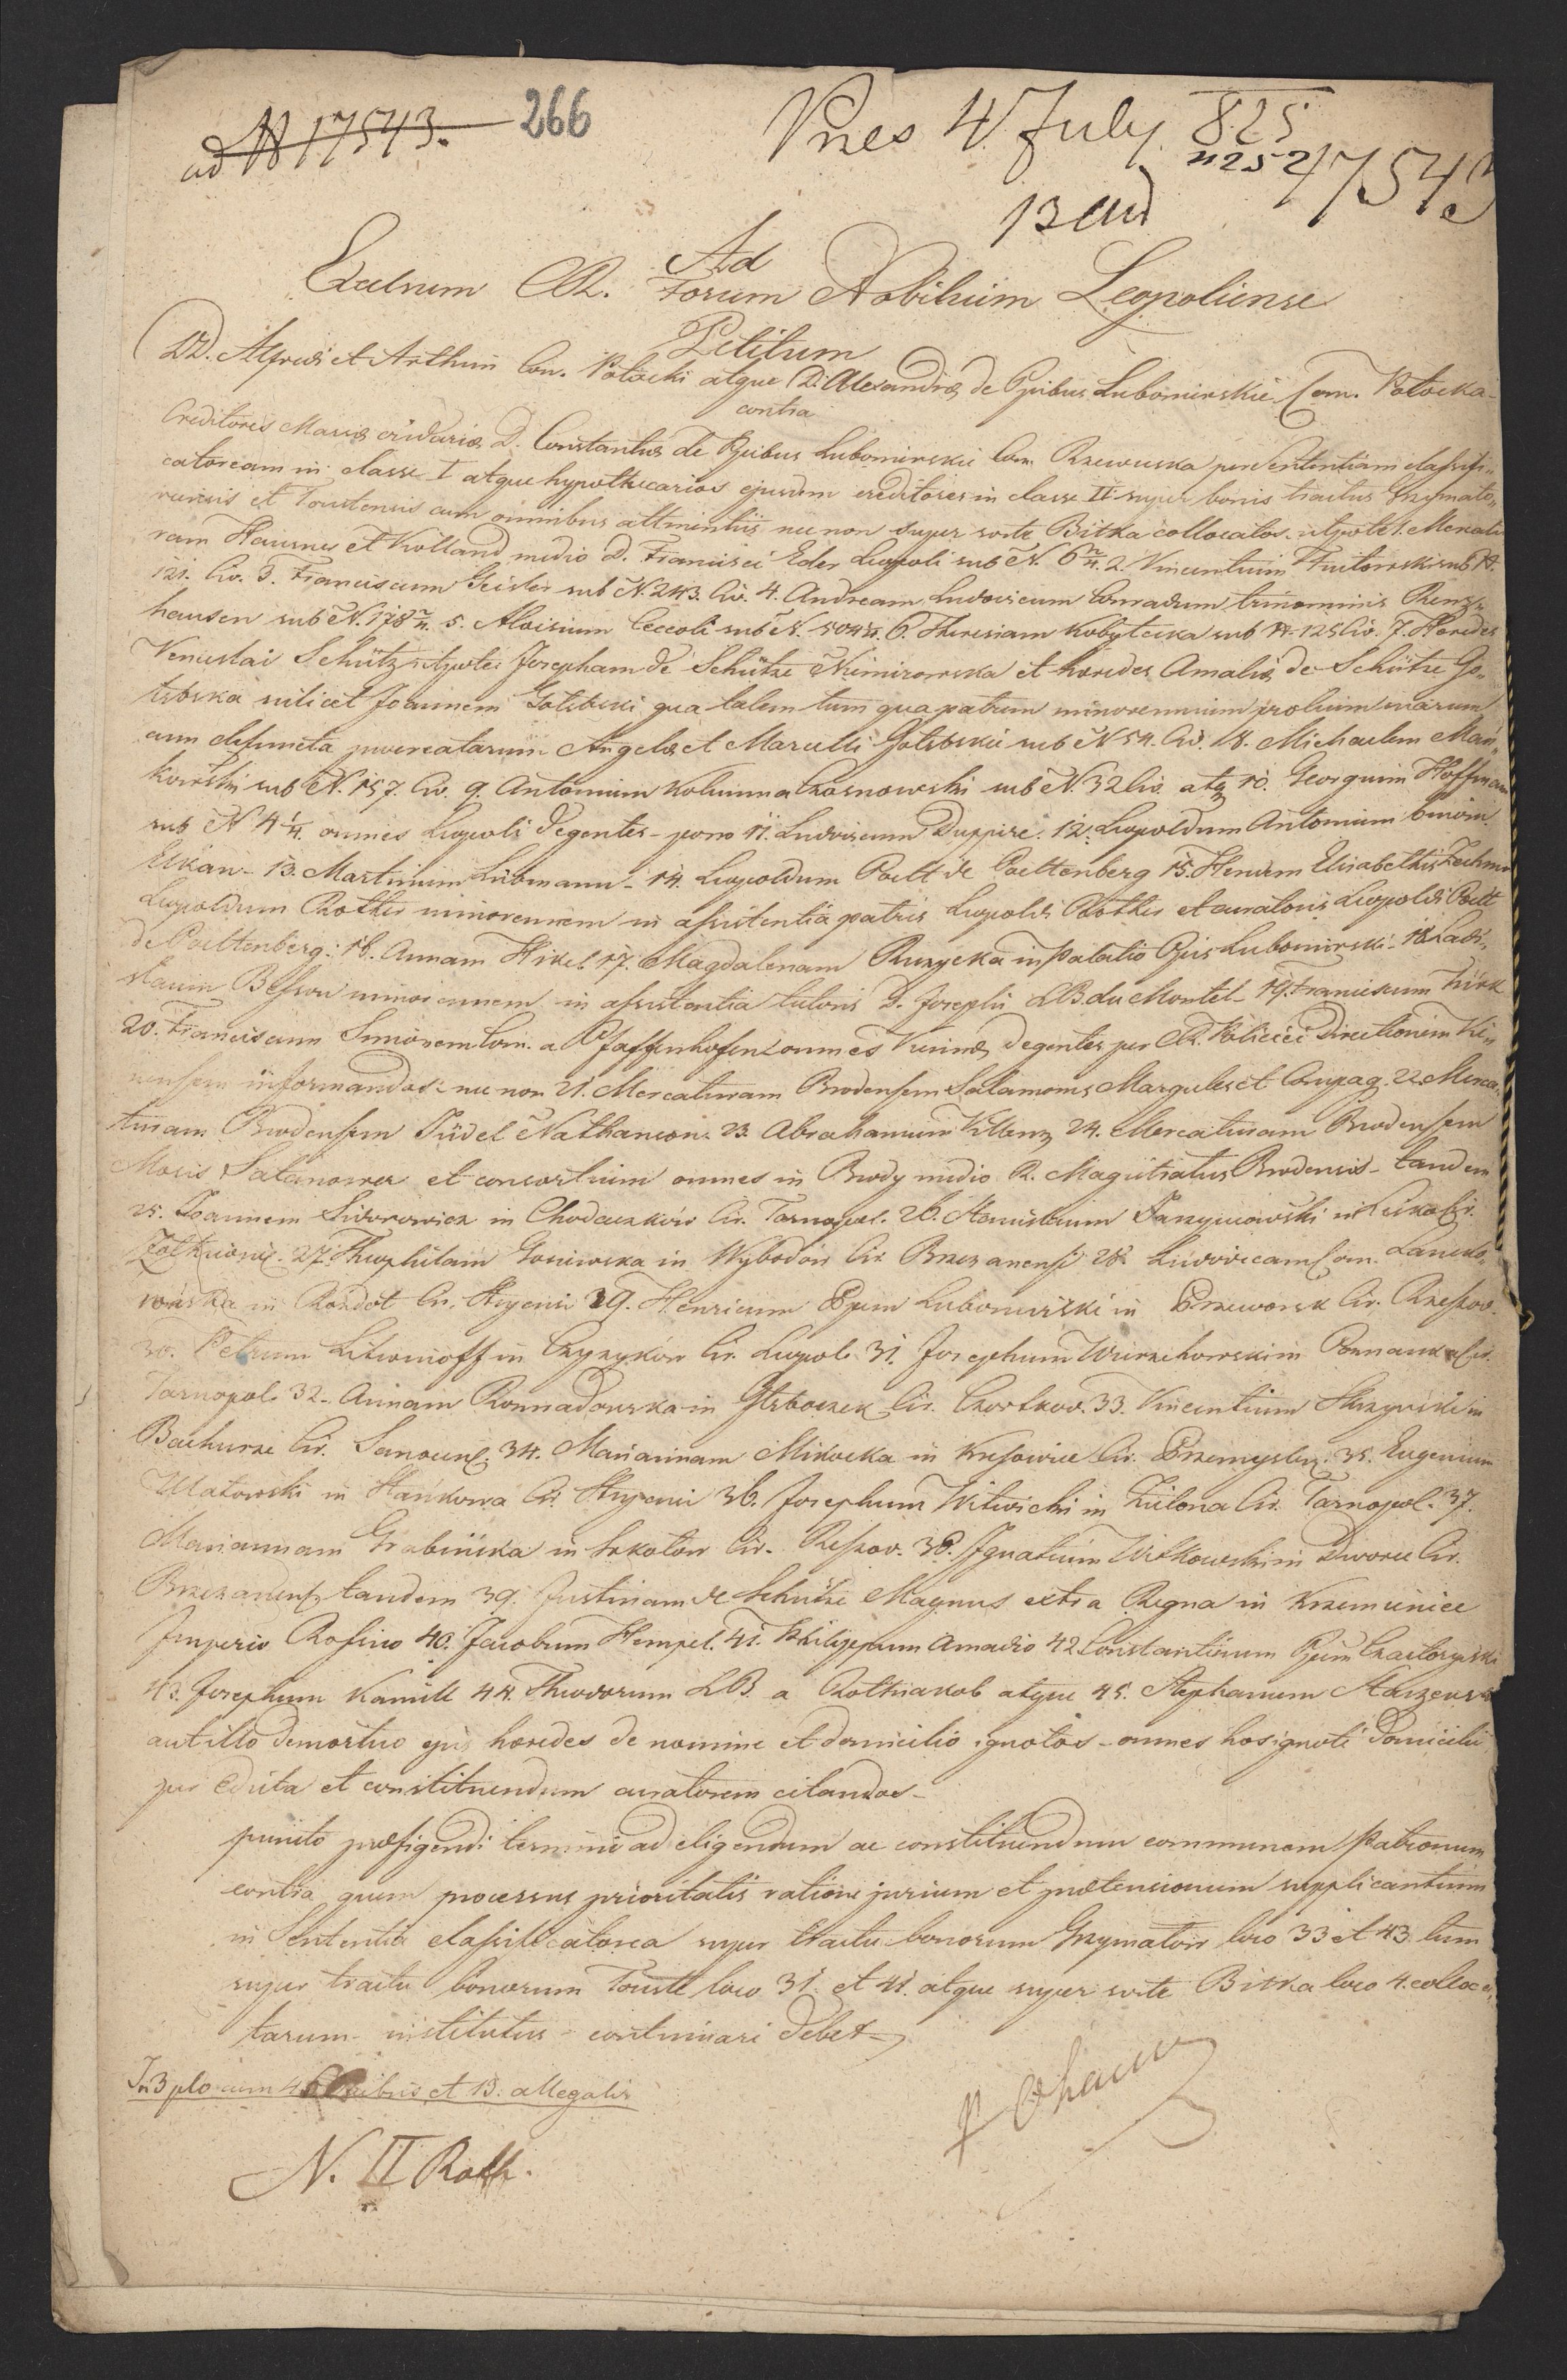 ad N 17543. 266
Pnes 4. July 825
n252 17543
13 aud
Ad
Excelsum C.R. Forum Nobilium Leopoliense
Petitum
DD. Alfredi et Arthuri Com. Potocki atque D. Alexandræ de Ppibus Lubomirskie Com. Potocka
contra
Creditores Massæ cridariæ D. Constantiæ de Ppibus Lubomirskie Com. Rzewuska per Sententiam classifi„
catoream in classe I atque hypothecarios ejusdem creditores in classe II super bonis tractus Grzymało„
viensis et Toustensis cum omnibus attinentiis nec non super sorte Bitka collocatos. utpote 1. Mercatu
ram Hausner et Violland medio D. Francisci Eder Leopoli sub N. 6 2/4. 2. Vincentium Tuitorski sub N.
121. Civ. 3. Franciscum Geister sub N. 243. Civ. 4. Andream Ludovicum Conradum trinominis Renz„
hausen sub N. 178 2/4. 5. Aloisium Ceccoli sub N. 504 4/4. 6. Theresiam Kobytecka sub N. 125 Civ. 7. Heredes
Venceslai Schütz utpote: Josepham de Schütze Niemirowska et hæredes Amaliæ de Schütze Go„
łębska scilicet Joannem Gołębski qua talem tum qua patrem minorennium prolium suarum
cum defuncta procreatarum Angelæ et Marcelli Gołębskie sub N 54. Civ. 8. Michaelem Mań„
kowski sub N. 157. Civ. 9. Antonium Kolumna Czosnowski sub N. 32 Civ. atq 10. Georgium Hoffman
sub N 4 1/4 omnes Leopoli degentes - porro 11. Ludovicum Duppire. 12. Leopoldum Antonium binom.
Elkan - 13. Martinum Lübmann - 14. Leopoldum Poelt de Poeltenberg 15. Heredem Elisabethis
Leopoldum Rother minorennem in assistentia patris Leopoldi Rother et curatoris Leopoldi Poelt
de Poeltenberg: 16. Annam Hikel. 17. Magdalenam Ruzycka in Palatio Ppis Lubomirski - 18. Ladi„
slaum Besson minorennem in assistentia tutoris D. Josephi LB. du Montel - 19. Franciscum Türk
20. Franciscum Simonem Com. a Pfaffenhofen omnes Viennæ degentes per C.R. Policiei Directionem Vi„
ennensem informandos: nec non 21. Mercaturam Brodensem Salamonis Margules et Compag. 22. Merca„
turam Brodensem Jüdel Nathanson. 23. Abrahamum 24. Mercaturam Brodensem
Mosis Satanower et consortium omnes in Brody medio R. Magistratus Brodensis - tandem
25. Joannem Sidorowicz in Chodaczków Cir. Tarnopol. 26. Stanislaum in Cir.
Zołkiewic. 27. Theophilam Gosiewska in Wybodów Cir. Brzezanensi 28. Ludovicam Com. Lancko„
rońska in Rozdoł Cir. Stryensi 29. Henricum Ppem Lubomirski in Przeworsk Cir. Rzeszov.
30. Petrum Litwinoff in Czyzyków Cir. Leopol. 31. Josephum Wierzchowski in Cir.
Tarnopol. 32. Annam Romradowska in Głęboczek Cir. Czortkov. 33. Vincentium Skrzyński in
Bachurze Cir. Sanocens. 34. Mariannam Mikocka in Krasowice Cir. Przemysliens. 35. Eugenium
Ulatowski in Stańkowa Cir. Stryensi 36. Josephum Witwicki in Zielona Cir. Tarnopol. 37.
Mariannam Grabińska in Sokołów Cir. Reszov. 38. Ignatium Witkowski in Dworce Cir.
Brzezanens. tandem 39. Justinam de Schütze Magnus extra Regna in Krzemieniec
Imperio Rossico 40. Jacobum Hempel. 41. Philippum Amadio 42. Constantinum Ppem Czartoryski
43. Josephum Kamill 44. Theodorum LB. a Rothjakob atque 45. Stephanum
aut illo demortuo ejus hæredes de nomine et domicilio ignotos - omnes hos ignoti domicilii
per Edicta et constituendum curatorem citandos -
puncto præfigendi termini ad eligendum ac constituendum communem Patronum
contra quem processus prioritatis ratione jurium et prætensionum supplicantium
in Sententia classificatorea super tractu bonorum Grzymałow loco 33 et 43 tum
super tractu bonorum Touste loco 31. et 41. atque super sorte Bitka loco 4. colloca„
tarum - institutus - continuari debet
In 3plo cum 4 et 13. allegatis
N. II Rath.